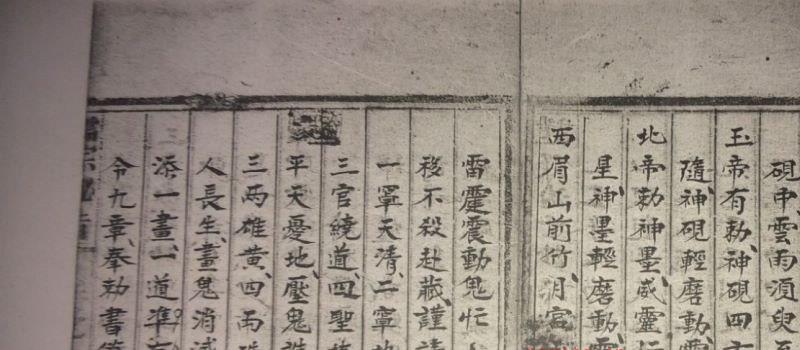 硯中雲雨須臾至
玉帝有勅神硯四方
隨神硯輕磨動
北帝勅神墨威靈
星神墨輕磨動
西眉山前竹
雷霆震動鬼忙
移不殺赴藏謹請
一寧天清二寧地
三官繞道四聖
平天憂地壓鬼
三両雄黃四両
人長生畫鬼消滅
添一畫一道準
令九章奉勅書